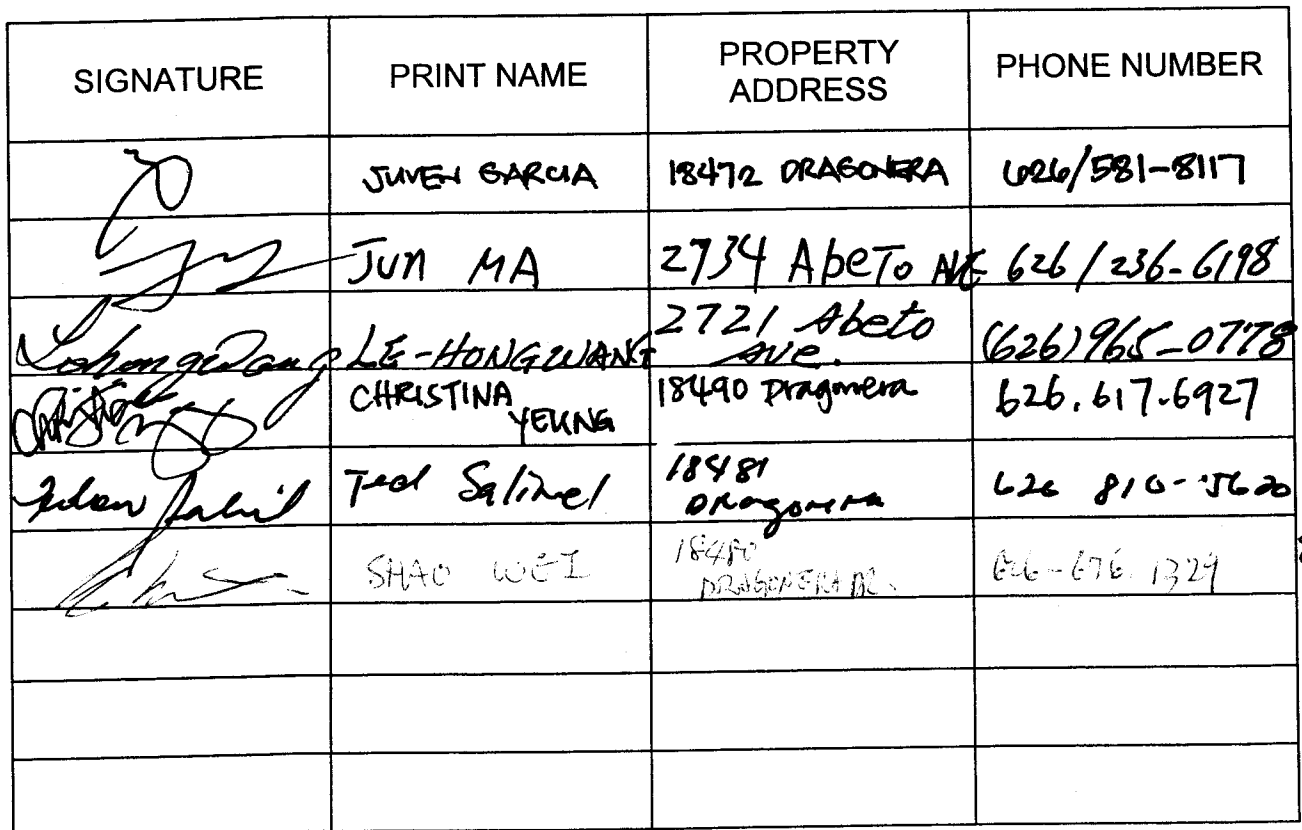 SIGNATURE PRINT NAME PROPERTY ADDRESS PHONE NUMBER
JUVEN GARCIA 18472 DRAGONERA 626/581-8117
JUN MA 2734 AbeTo AVE 626/236-6198
Lehong Wang LE-HONG WANG 2721 Abeto Ave. (626)965-0778
CHRISTINA YEUNG 18490 Dragonera 626.617.6927
Ted 18481 Dragonera 626 810-5620
SHAO WEI 18480 DRAGONERA DR. 626-676.1329